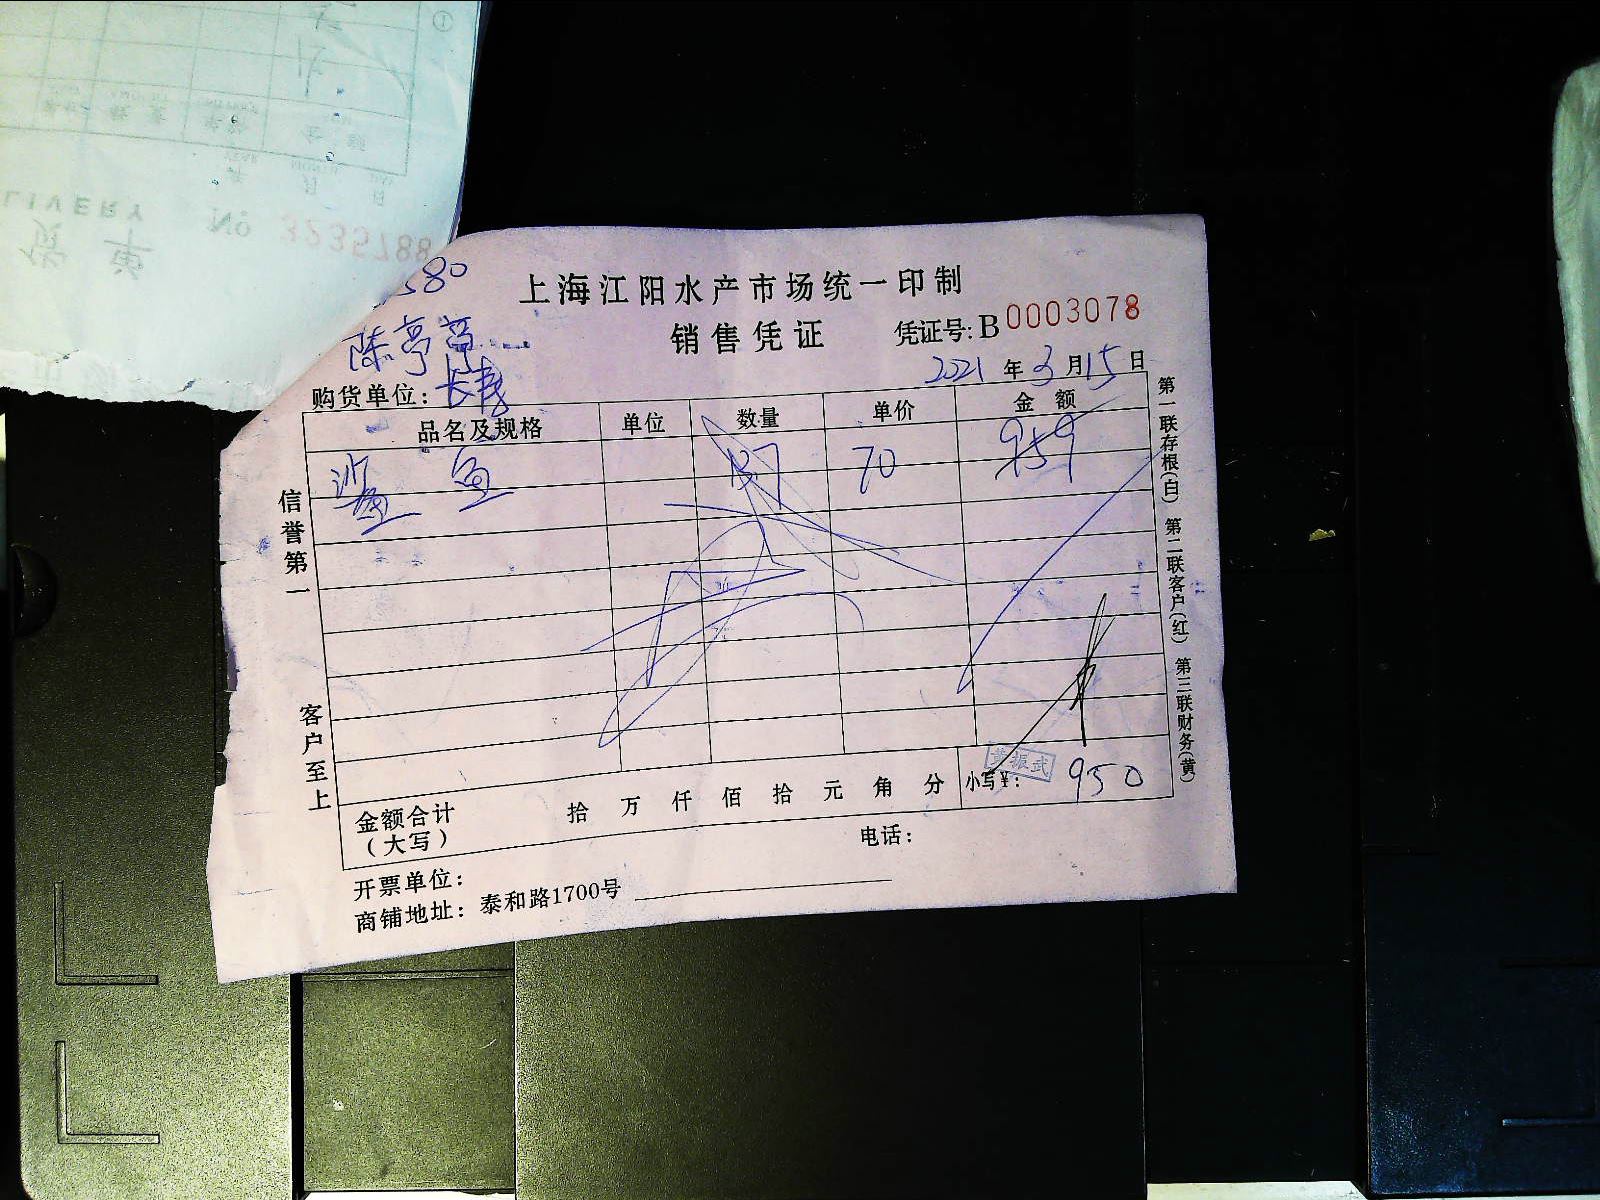 LIVERY
货单
No 3235788
580
上海江阳水产市场统一印制
销售凭证
凭证号: B 0003078
陈亭亭
2021 年 3 月 15 日
购货单位:
品名及规格 单位 数量 单价 金额
鲨鱼 13.7 70 959
信誉第一
客户至上
第一联存根(白) 第二联客户(红) 第三联财务(黄)
黄振武
金额合计 拾 万 仟 佰 拾 元 角 分 小写¥: 950
(大写)
电话:
开票单位:
商铺地址: 泰和路1700号